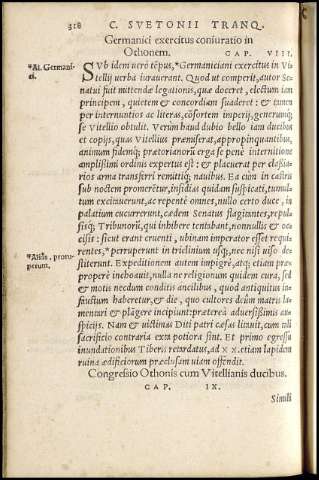 318 C. SVETONII TRANQ.
Germanici exercitus coniuratio in
Othonem. CAP. VIII.
*Al. Germanici.
SVb idem uerò tẽpus, *Germaniciani exercitus in Vi
tellij uerba iurauerant. Quod ut comperit, autor Se
natui fuit mittendæ legationis, quæ doceret, electum iam
principem, quietem & concordiam suaderet: & tamen
per internuntios ac literas, cõsortem imperij, generumq;
se Vitellio obtulit. Verùm haud dubio bello iam ducibus
et copijs, quas Vitellius præmiserat, appropinquantibus,
animum fidemq; prætorianorũ erga se penè internitione
amplißimi ordinis expertus est: & placuerat per classia-
rios arma transferri remittiq; nauibus. Ea cùm in castris
sub noctem promerẽtur, insidias quidam suspicati, tumul-
tum exciuerunt, ac repentè omnes, nullo certo duce, in
palatium cucurrerunt, cædem Senatus flagitantes, repul-
sisq; Tribunorũ, qui inhibere tentabant, nonnullis & oc
cisis: sicut erant cruenti, ubinam imperator esset requi
rentes, *perruperunt in triclinium usq;, nec nisi uiso de-
*Aliàs, proruperunt.
stiterunt. Expeditionem autem impigrè, atq; etiam præ
properè inchoauit, nulla ne religionum quidem cura, sed
& motis necdum conditis ancilibus, quod antiquitus in-
faustum haberetur, & die, quo cultores deûm matris la-
mentari & plãgere incipiunt: prætereà aduersißimis au-
spicijs. Nam & uictimas Diti patri cæsas litauit, cum tali
sacrificio contraria exta potiora sint. Et primo egressu
inundationibus Tiberis retardatus, ad XX. etiam lapidem
ruina ædificiorum præclusam uiam offendit.
Congressio Othonis cum Vitellianis ducibus.
CAP. IX.
Simili